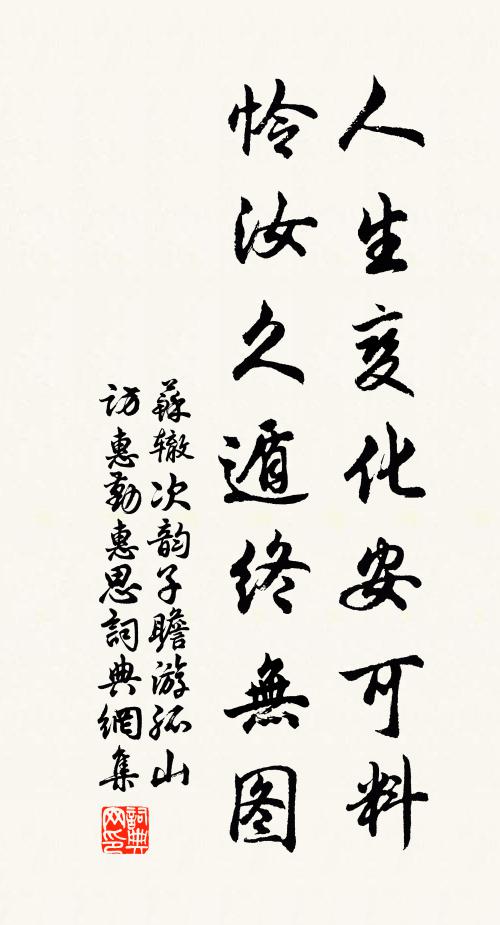 人生变化安可料
怜汝久遁终無图
蘇辙次韵子瞻游孤山
访惠勤惠思詞典網集
詞典
网印